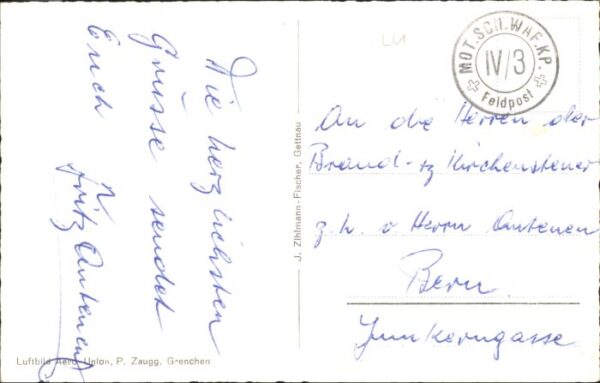 Die herzlichsten
Grüsse sendet
Euch
Fritz Antenen
LU
MOT. SCH. WAF. KP.
IV/3
Feldpost
An die Herren der
Brand- Kirchensteuer
z. h. v Herrn Antenen
Bern
Junkerngasse
J. Zihlmann-Fischer, Gettnau
Luftbild Aero Union, P. Zaugg, Grenchen